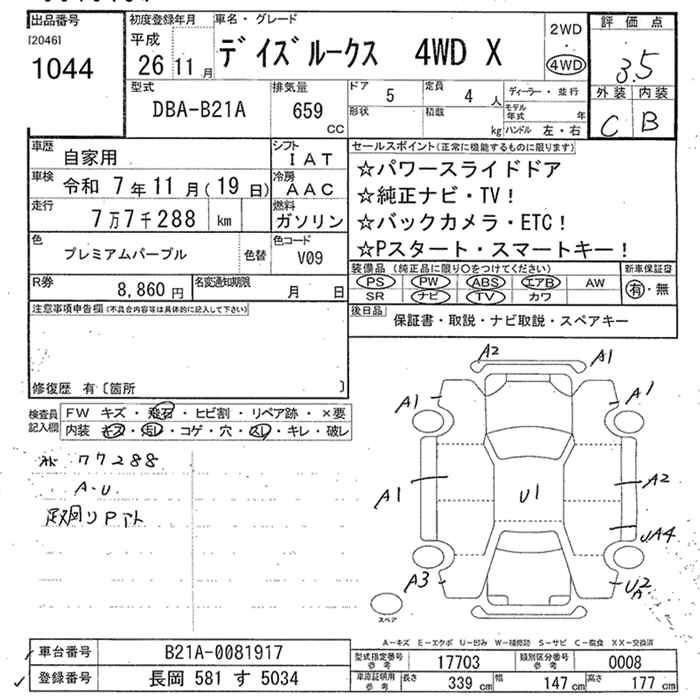 出品番号
[2046]
1044
初度登録年月
平成
26 11 月
車名・グレード
デイズルークス 4WD X
2WD
・
4WD
評価点
3.5
外装 内装
C B
型式
DBA-B21A
排気量
659
CC
ドア
5
定員
4 人
形状
積載
kg
ディーラー・並行
モデル年式 年
ハンドル 左・右
車歴
自家用
シフト
IAT
車検
令和 7 年 11 月(19 日)
冷房
AAC
走行
7 万 7 千 288 km
燃料
ガソリン
色
プレミアムパープル
色替
色コード
V09
R券
8,860 円
名変通知期限
月 日
セールスポイント(正常に機能するものに限ります)
☆パワースライドドア
☆純正ナビ・TV!
☆バックカメラ・ETC!
☆Pスタート・スマートキー!
装備品 (純正品に限り○をつけてください)
新車保証書
PS PW ABS エアB AW
SR ナビ TV カワ
有・無
後日品
保証書・取説・ナビ取説・スペアキー
注意事項申告欄(不具合内容等は具体的に記入して下さい)
修復歴 有〔箇所 〕
検査員
記入欄
FW キズ・飛石・ヒビ割・リペア跡・×要
内装 キズ・汚レ・コゲ・穴・スレ・キレ・破レ
77288
A-U
A2
A1
A1
A1
A1
U1
A2
A4
A3
U2
スペア
A-キズ E-エクボ U-凹ミ W-補修跡 S-サビ C-腐食 XX-交換済
車台番号
B21A-0081917
登録番号
長岡 581 す 5034
型式指定番号
参考
17703
類別区分番号
参考
0008
車庫証明用
参考
長さ 339 cm
幅 147 cm
高さ 177 cm